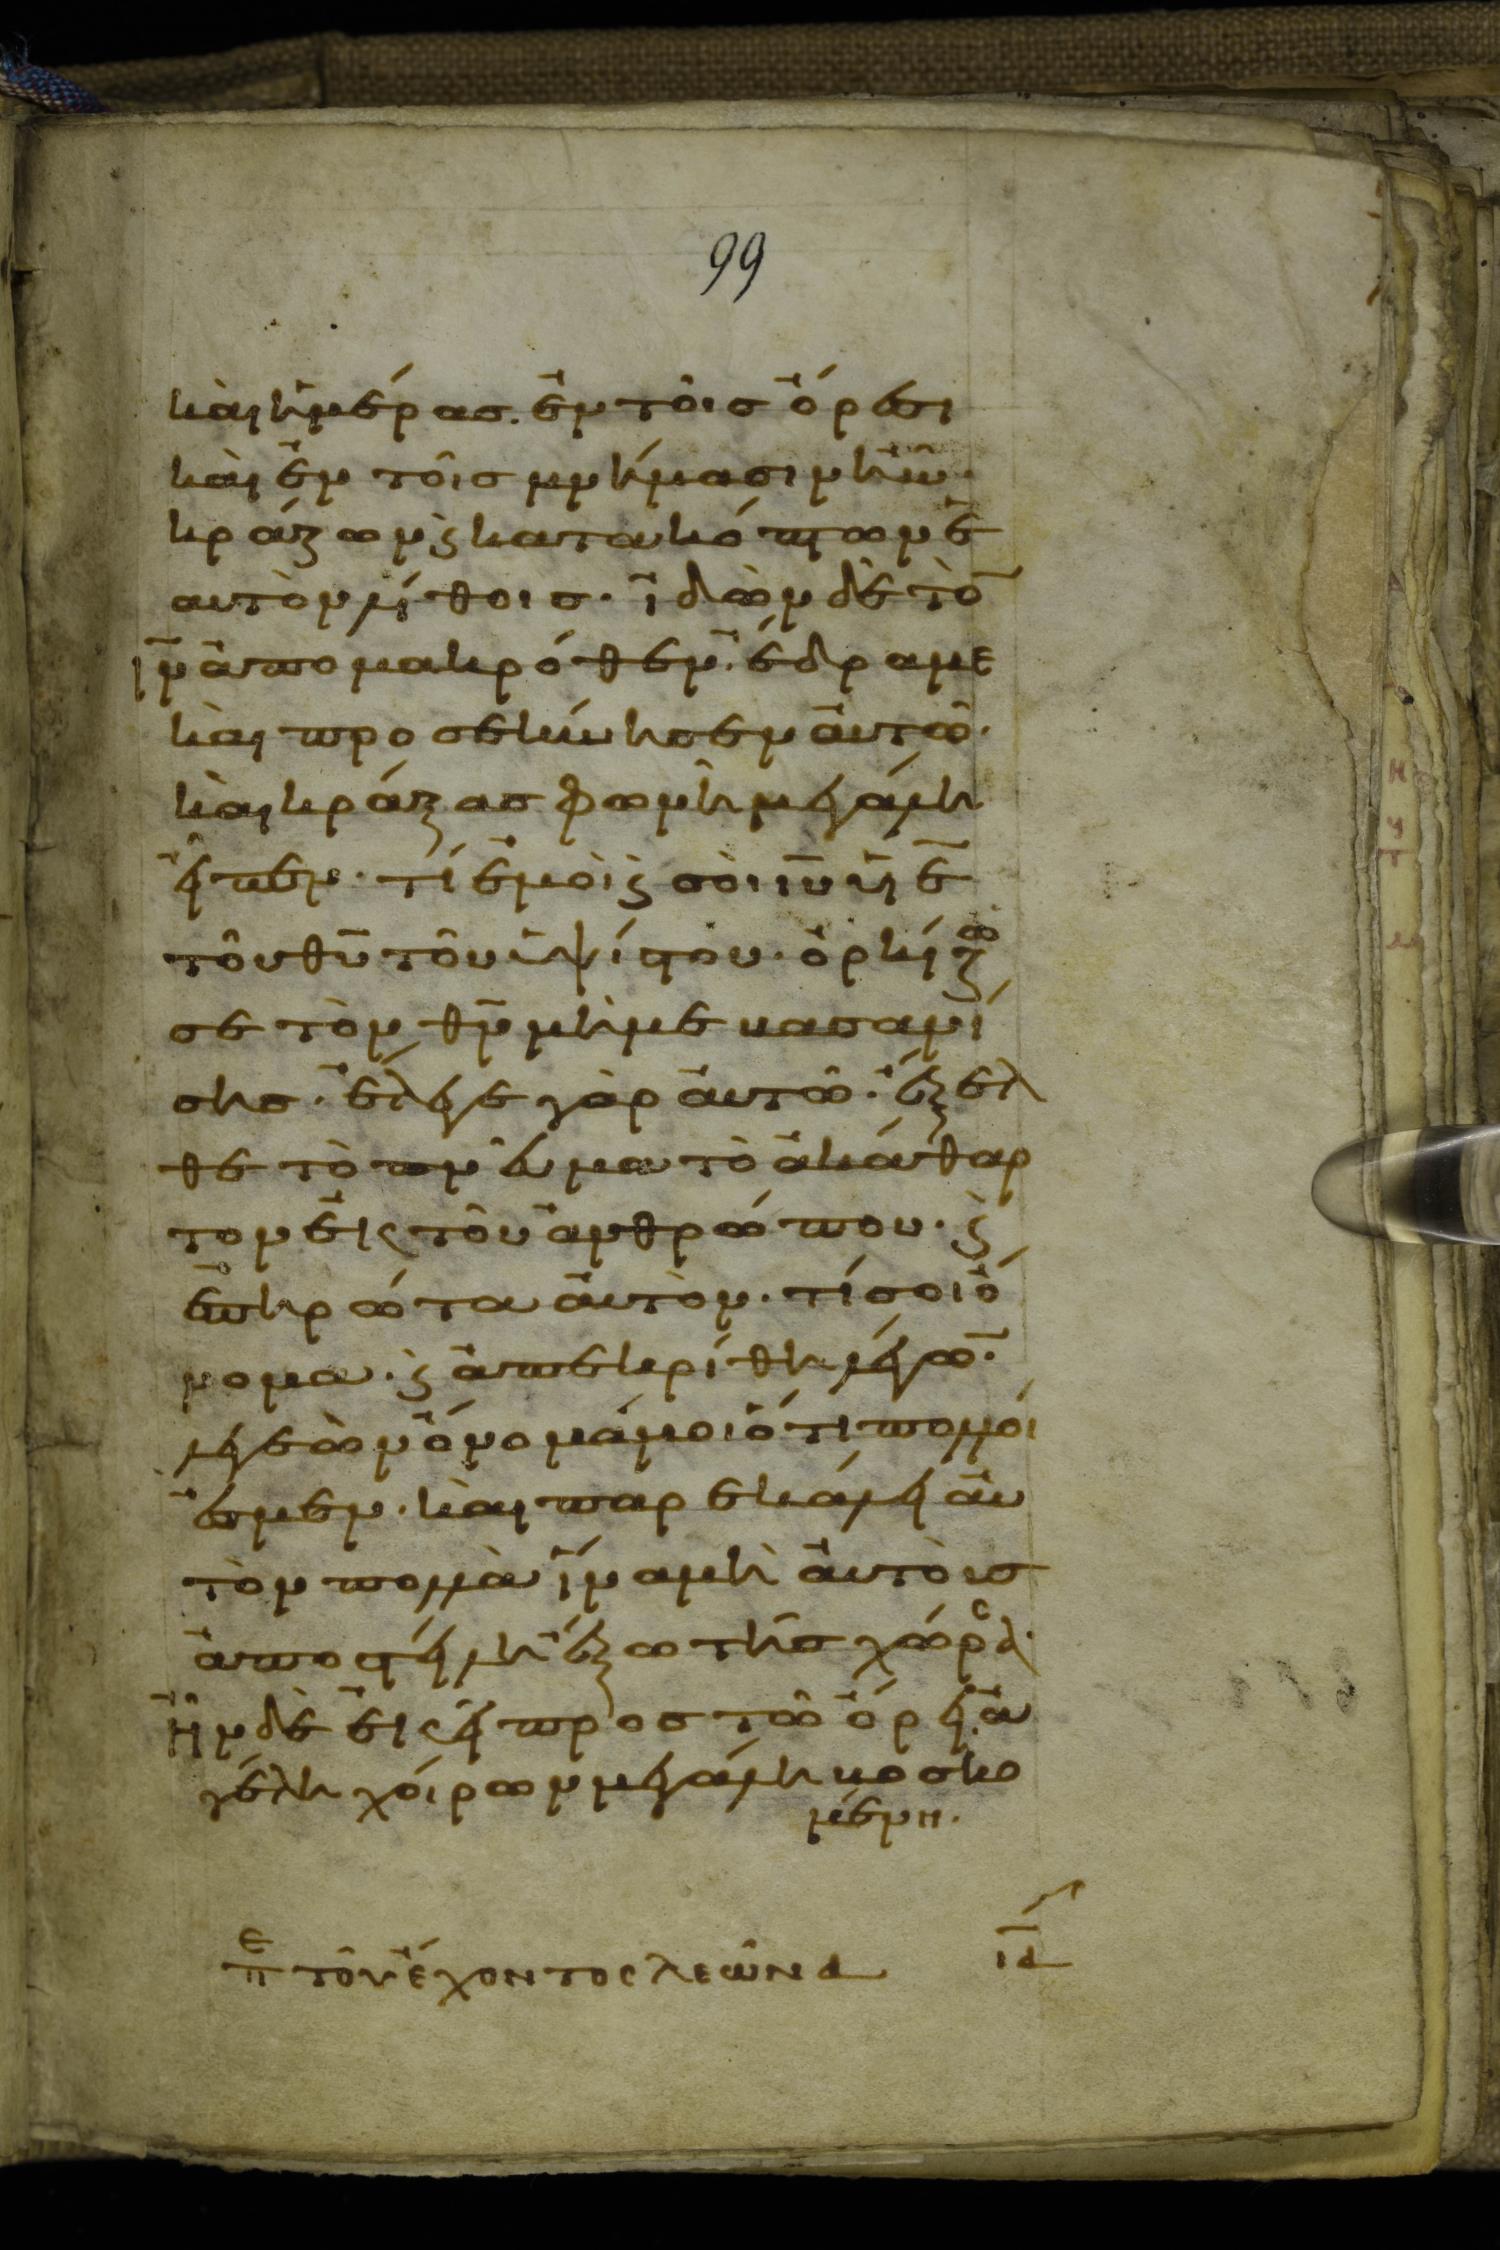 99
καὶ ἡμέρας. ἐν τοῖς ὄρεσι
καὶ ἐν τοῖς μνήμασιν ἦν·
κράζων ϗ κατακόπτων ε̄
αυτὸν λίθοις· ἰδὼν δὲ τὸ̄
ιν̄ ἀπομακρόθεν· ἔδραμε
καὶ προσεκύνησεν αὐτῶ·
καὶ κράξας φωνῆ μεγάλη
εἶπεν· τί ἐμοὶ ϗ σοὶ ιῡ υἱὲ
τοῦ θῡ τοῦ ὑψίστου· ὁρκίζω
σε τὸν θν̄ μή με βασανί
σης· ἔλεγε γὰρ αὐτῶ· ἔξελ
θε τὸ πνεῦμα τὸ ἀκάθαρ
τον εἰς τοῦ ἀνθρώπου· ϗ
ἐπηρώτα αὐτὸν· τί σοι ὄ
νομα· ϗ ἀπεκρίθη λέγω̄·
λεγεὼν ὄνομά μοι ὅτι πολλοί
ἐσμεν· καὶ παρεκάλει αὐ
τὸν πολλὰ ἵνα μὴ αὐτοὺς
ἀποστείλη ἔξω τῆς χώρας·
ἦν δὲ ἐκεῖ προς τῶ ὄρει ἀ
γέλη χοίρων μεγάλη βοσκο
μένη.
πε τοῦ ἔχοντος λεῶνα ιᾱ